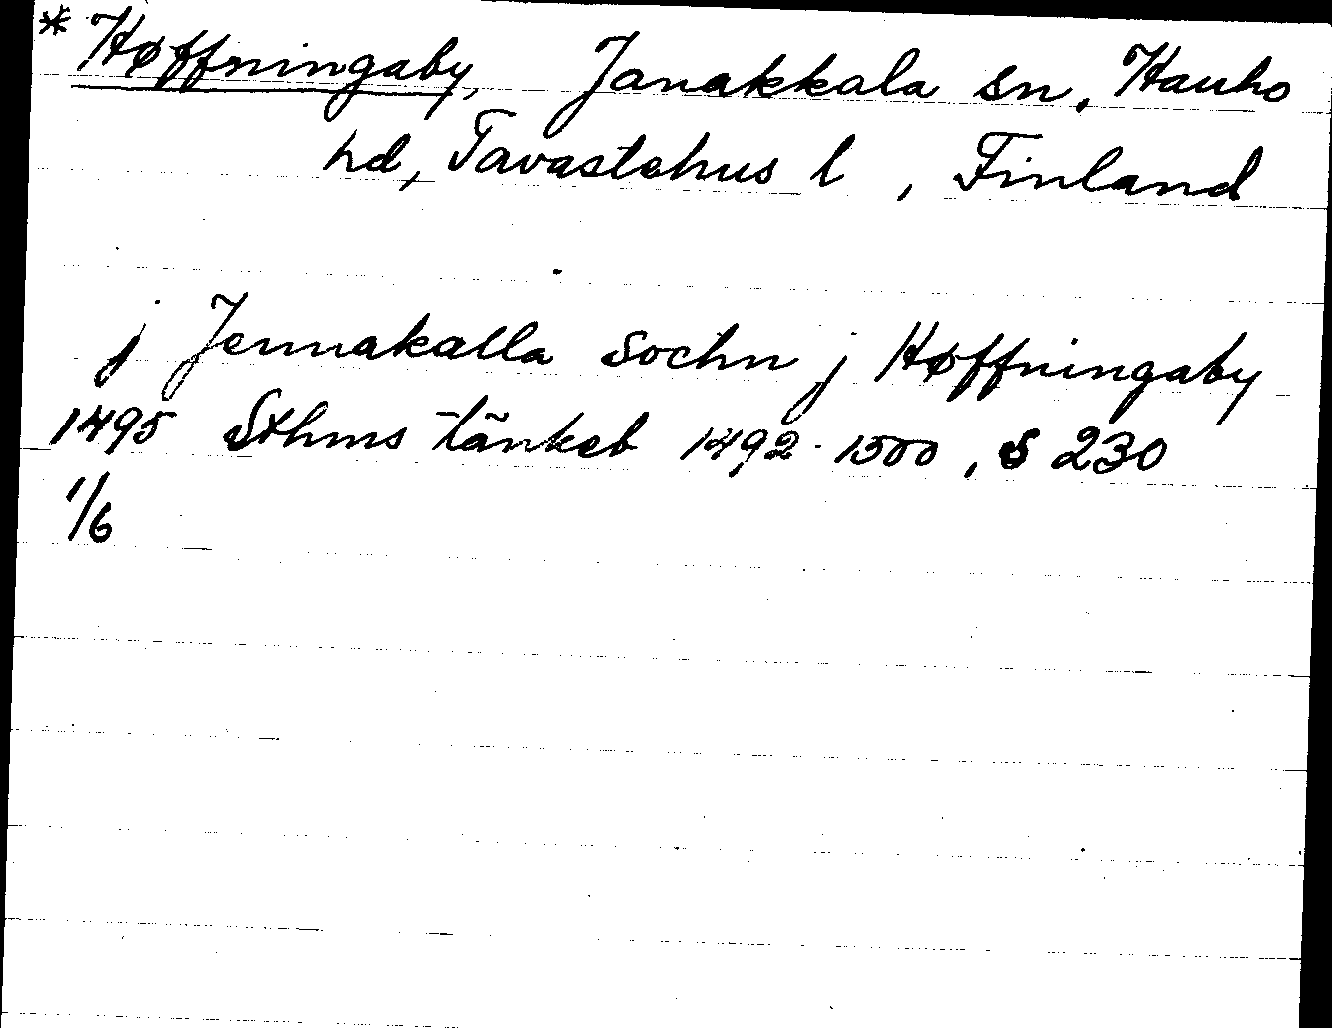 * Høffningaby, Janakkala sn, Hauho
hd, Tavastehus l , Finland
j Jennakalla sochn j Høffningaby
1495 Sthms tänkeb 1492-1500, s 230
1/6